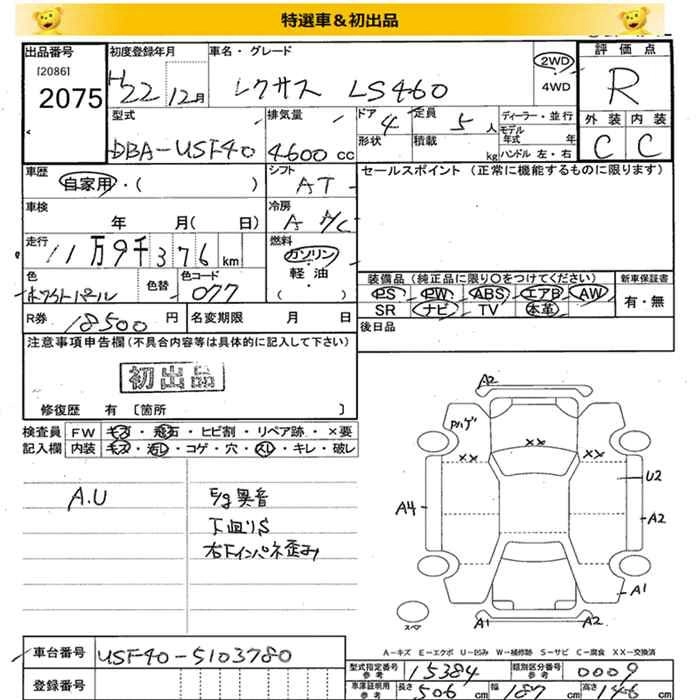 特選車＆初出品
出品番号
[2086]
2075
初度登録年月
H22 12月
車名・グレード
レクサス LS460
2WD
4WD
評価点
R
外装 内装
C C
型式
DBA-USF40
排気量
4600 cc
ドア
4
形状
定員
5 人
積載
kg
ディーラー・並行
モデル年式 年
ハンドル 左・右
車歴
自家用・( )
シフト
AT
セールスポイント (正常に機能するものに限ります)
車検
年 月( 日)
冷房
A A/C
走行
11万9千376 km
燃料
ガソリン
軽油
( )
色
ホワイトパール
色替
色コード
077
装備品 (純正品に限り〇をつけてください)
新車保証書
PS PW ABS エアB AW
SR ナビ TV 本革
有・無
R券
18500 円
名変期限 月 日
後日品
注意事項申告欄(不具合内容等は具体的に記入して下さい)
初出品
修復歴 有 〔箇所 〕
検査員 FW キズ・飛石・ヒビ割・リペア跡・×要
記入欄 内装 キズ・汚レ・コゲ・穴・スレ・キレ・破レ
A.U
E/g異音
下廻りS
右下インパネ歪み
A2
Pハゲ
XX
XX
XX
U2
A4
A2
A1
スペア
A1
A2
A－キズ E－エクボ U－凹み W－補修跡 S－サビ C－腐食 XX－交換済
車台番号
USF40-5103780
登録番号
型式指定番号
参考
15384
類別区分番号
参考
0009
車庫証明用
参考
長さ
506 cm
幅
187 cm
高さ
146 cm